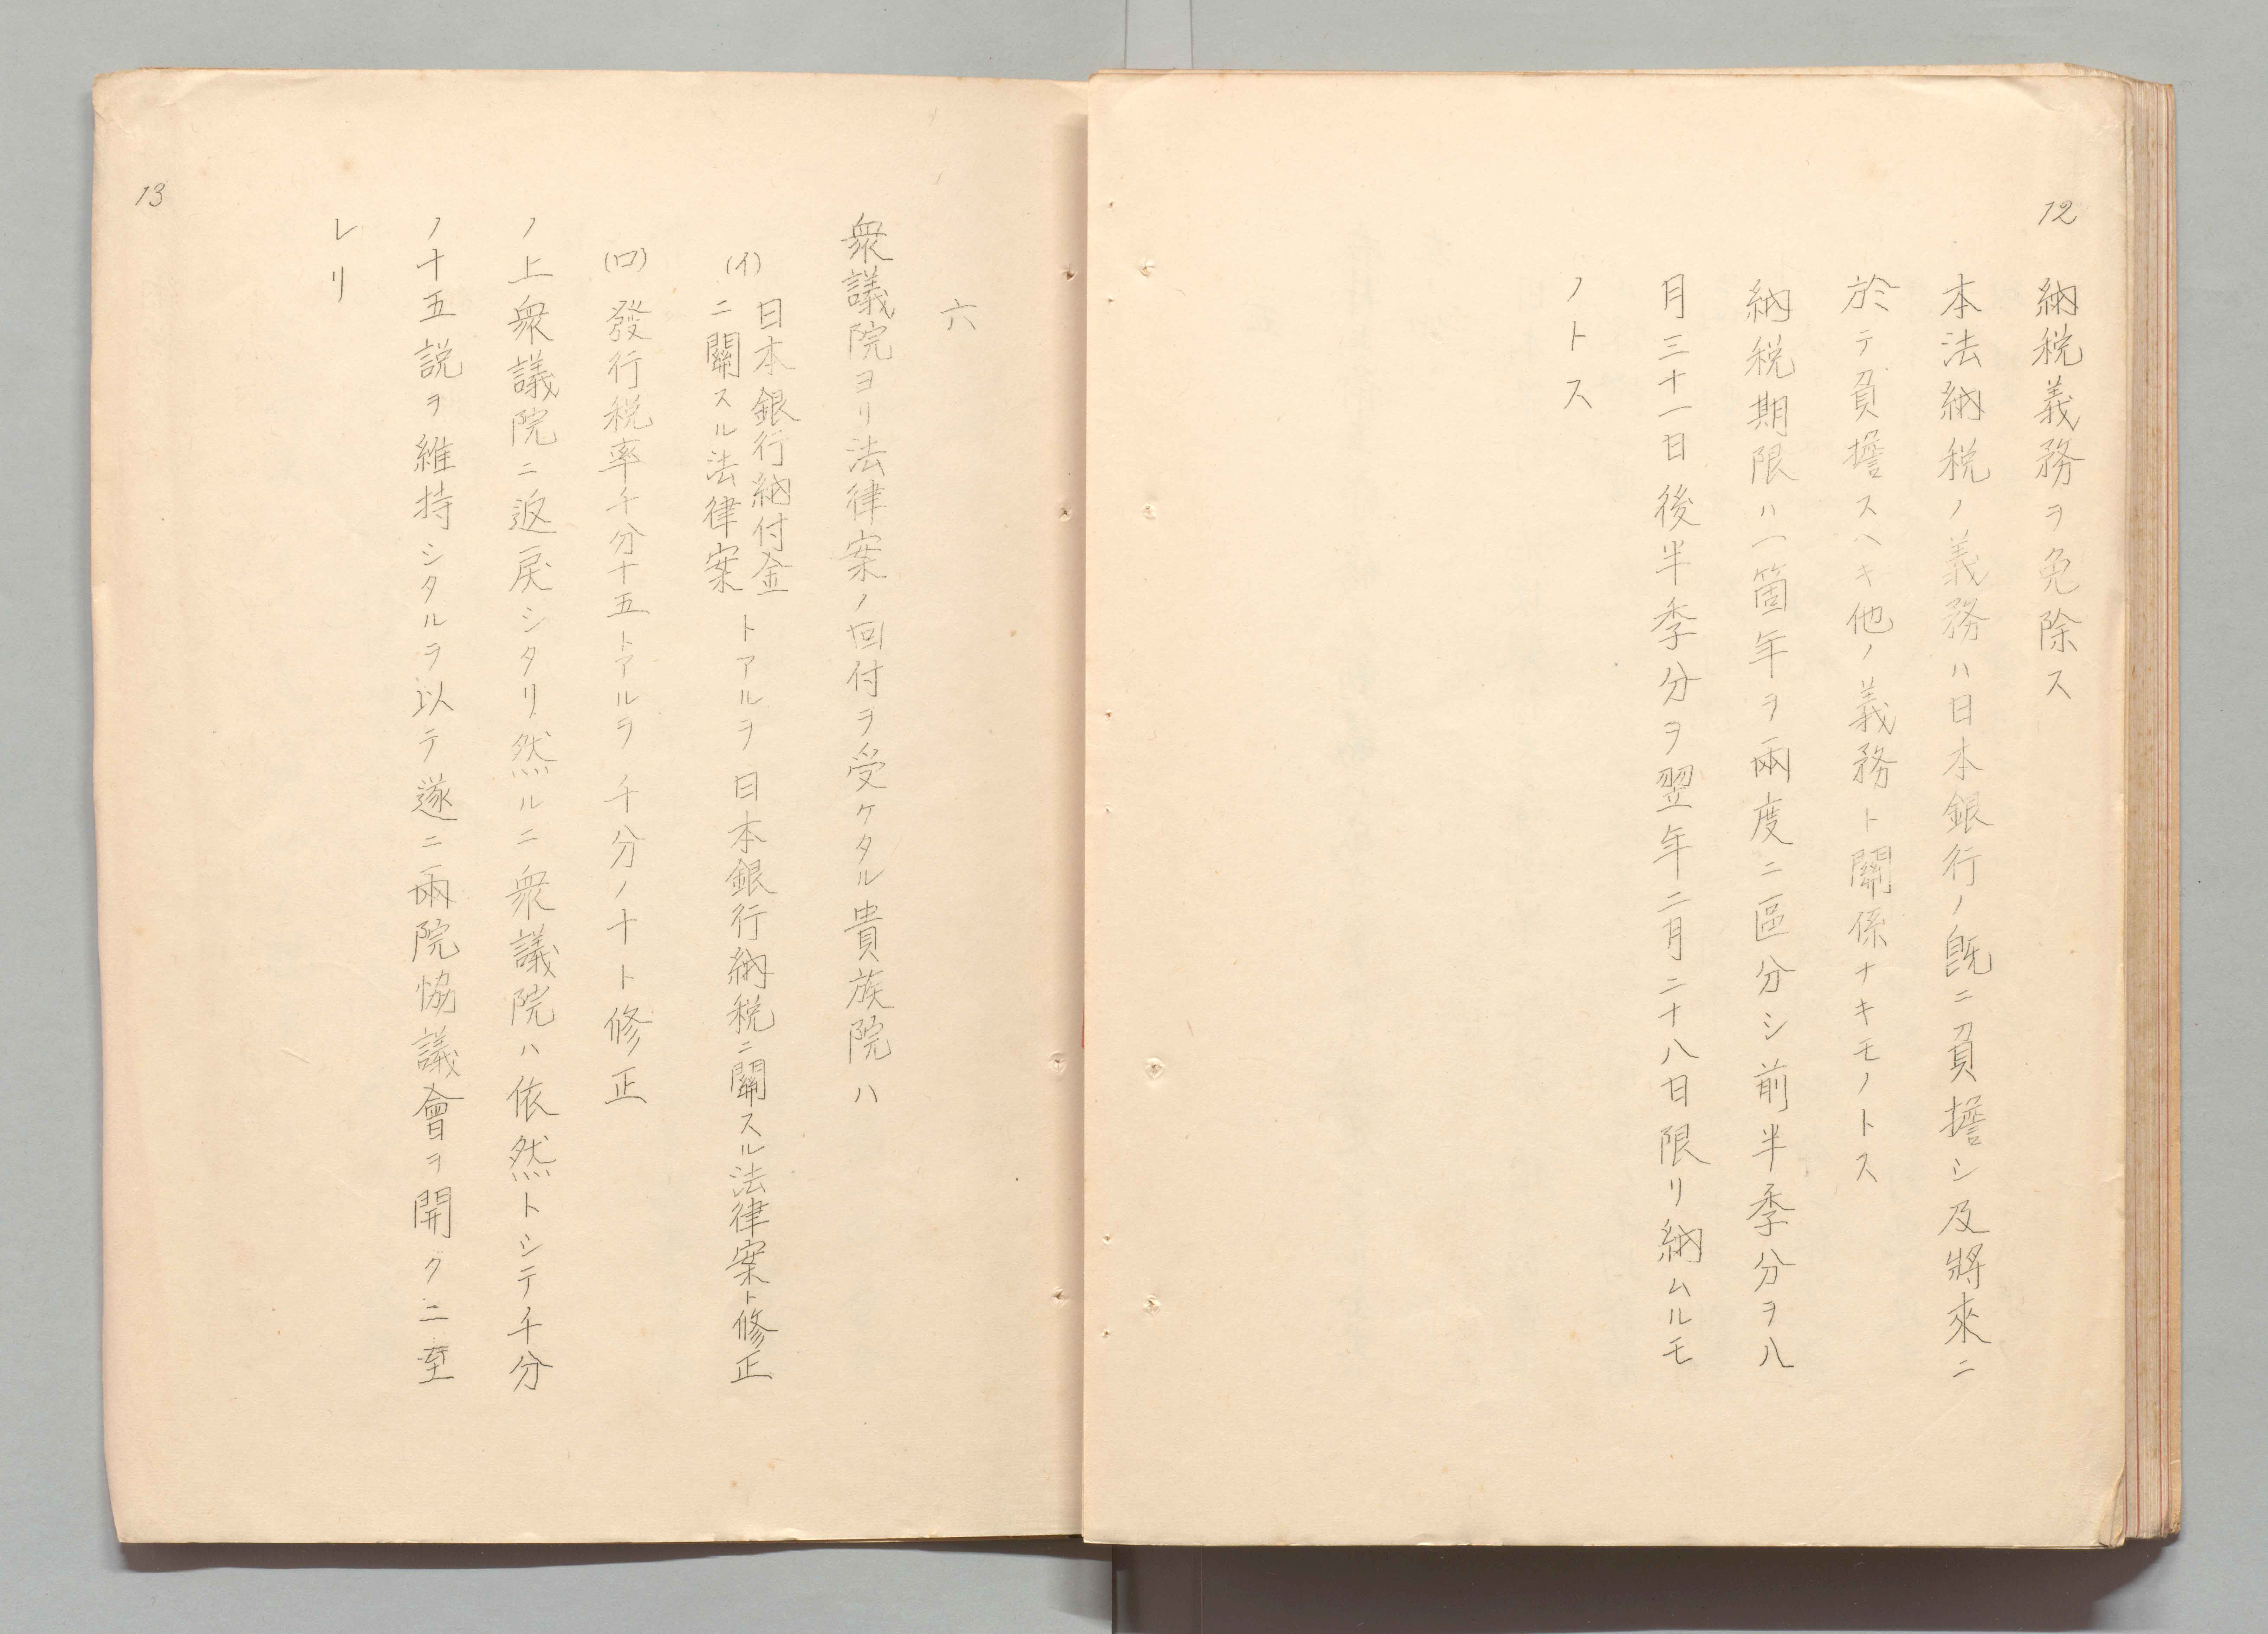 12
納税義務ヲ免除ス
本法納税ノ義務ハ日本銀行ノ既ニ負擔シ及將來ニ
於テ負擔スヘキ他ノ義務ト關係ナキモノトス
納税期限ハ一箇年ヲ兩度ニ區分シ前半季分ヲ八
月三十一日後半季分ヲ翌年二月二十八日限リ納ムルモ
ノトス
六
衆議院ヨリ法律案ノ回付ヲ受ケタル貴族院ハ
(イ) 日本銀行納付金
ニ關スル法律案 トアルヲ 日本銀行納税ニ關スル法律案ト修正
(ロ) 發行税率千分十五トアルヲ 千分ノ十ト修正
ノ上衆議院ニ返戻シタリ然ルニ衆議院ハ依然トシテ千分
ノ十五説ヲ維持シタルヲ以テ遂ニ兩院協議會ヲ開クニ至
レリ
13